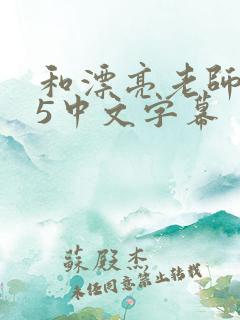 和漂亮老師
5中文字幕
蘇殿杰
未经同意禁止转载